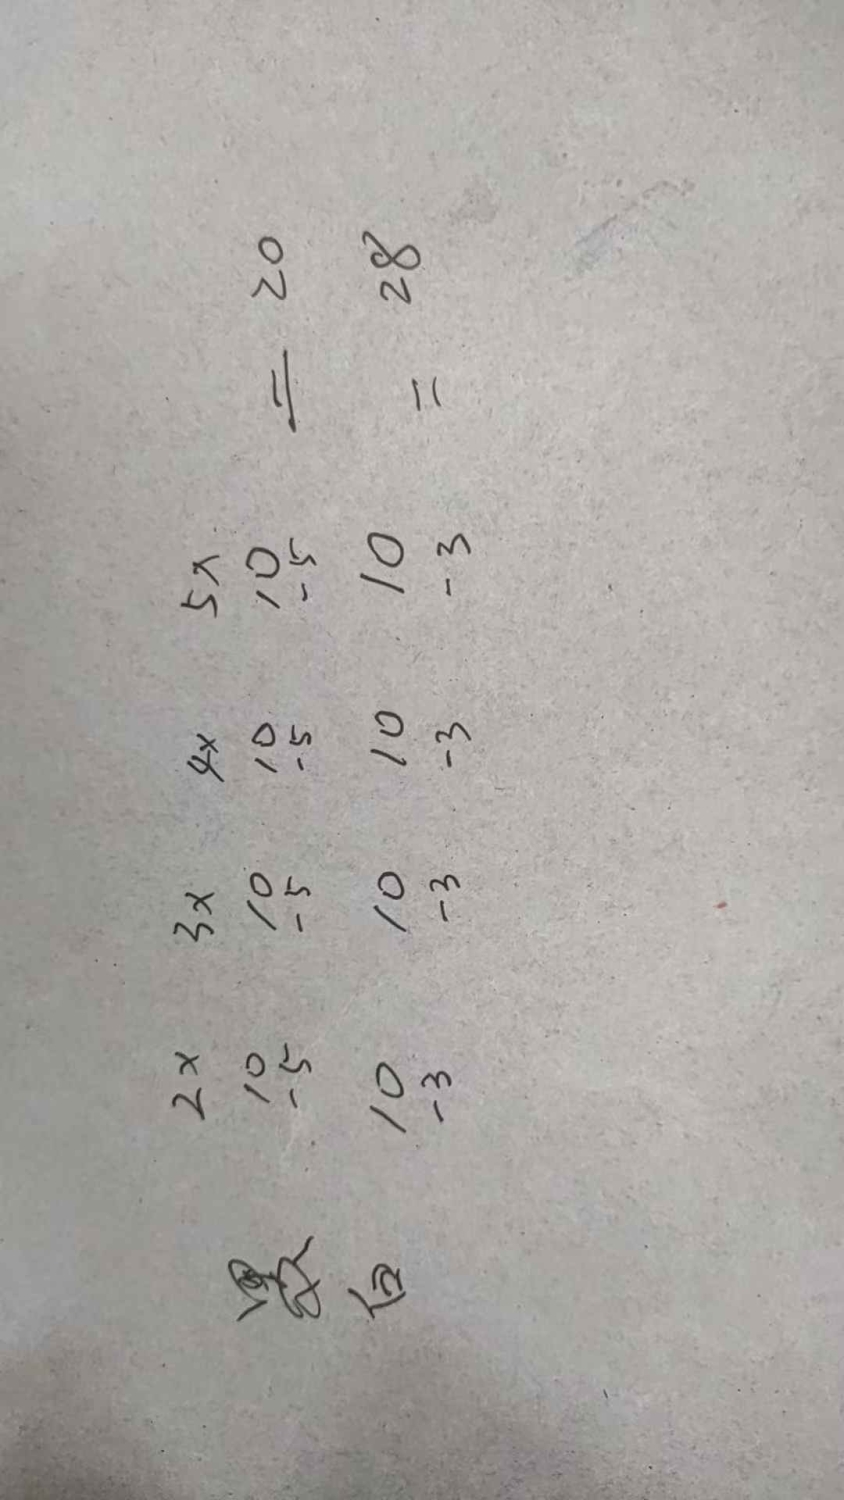 2x 3x 4x 5x
10 10 10 10 = 20
-5 -5 -5 -5
10 10 10 10 = 28
-3 -3 -3 -3